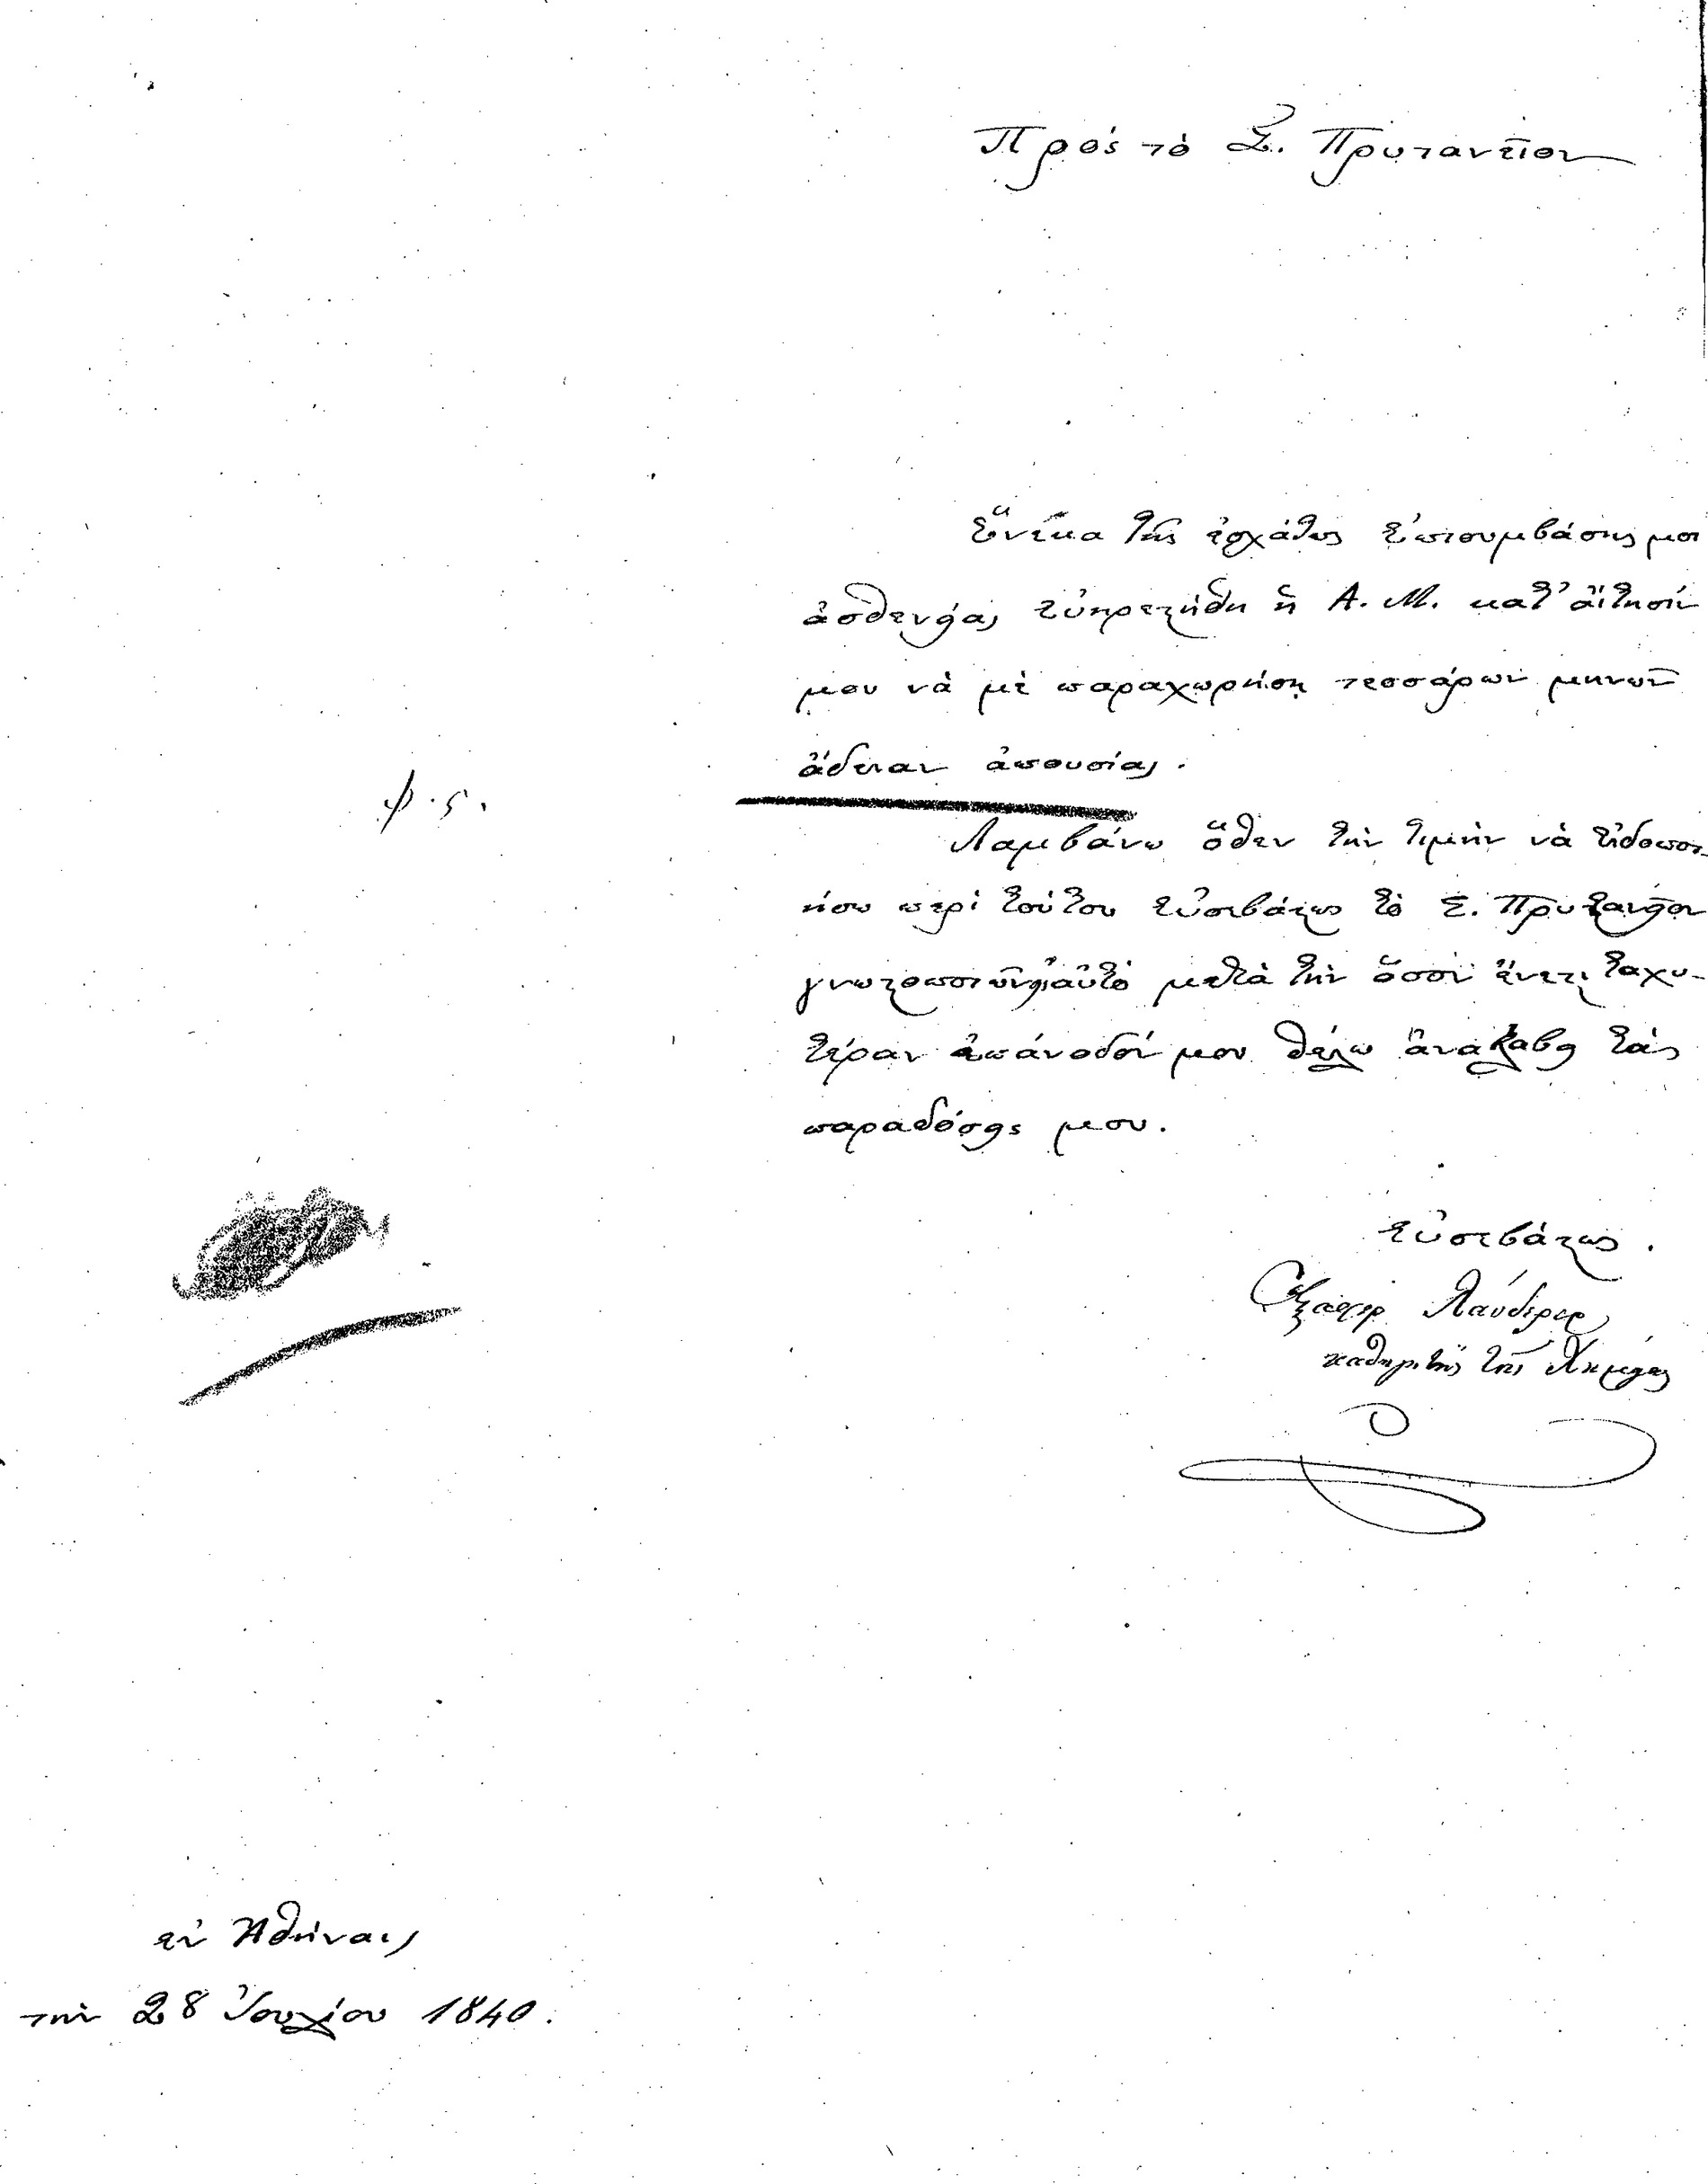 Πρὸς τὸ Σ. Πρυτανεῖον
Ἕνεκα τῆς ἐσχάτως ἐπισυμβάσης μοι
ἀσθενείας εὐηρεστήθη ἡ Α. Μ. κατ' αἴτησίν
μου νὰ μὲ παραχωρήσῃ τεσσάρων μηνῶν
ἄδειαν ἀπουσίας.
φ. 5.
Λαμβάνω ὅθεν τὴν τιμὴν νὰ εἰδοποι-
ήσω περὶ τούτου εὐσεβάστως τὸ Σ. Πρυτανεῖον
αὐτὸ μετὰ τὴν ὅσον ταχυ-
τέραν ἐπάνοδόν μου θέλω ἀναλάβει τὰς
παραδόσεις μου.
εὐσεβάστως.
Ξαβέρ Λάνδερερ
καθηγητὴς τῆς Χημείας
ἐν Ἀθήναις
τὴν 28 Ἰουλίου 1840.